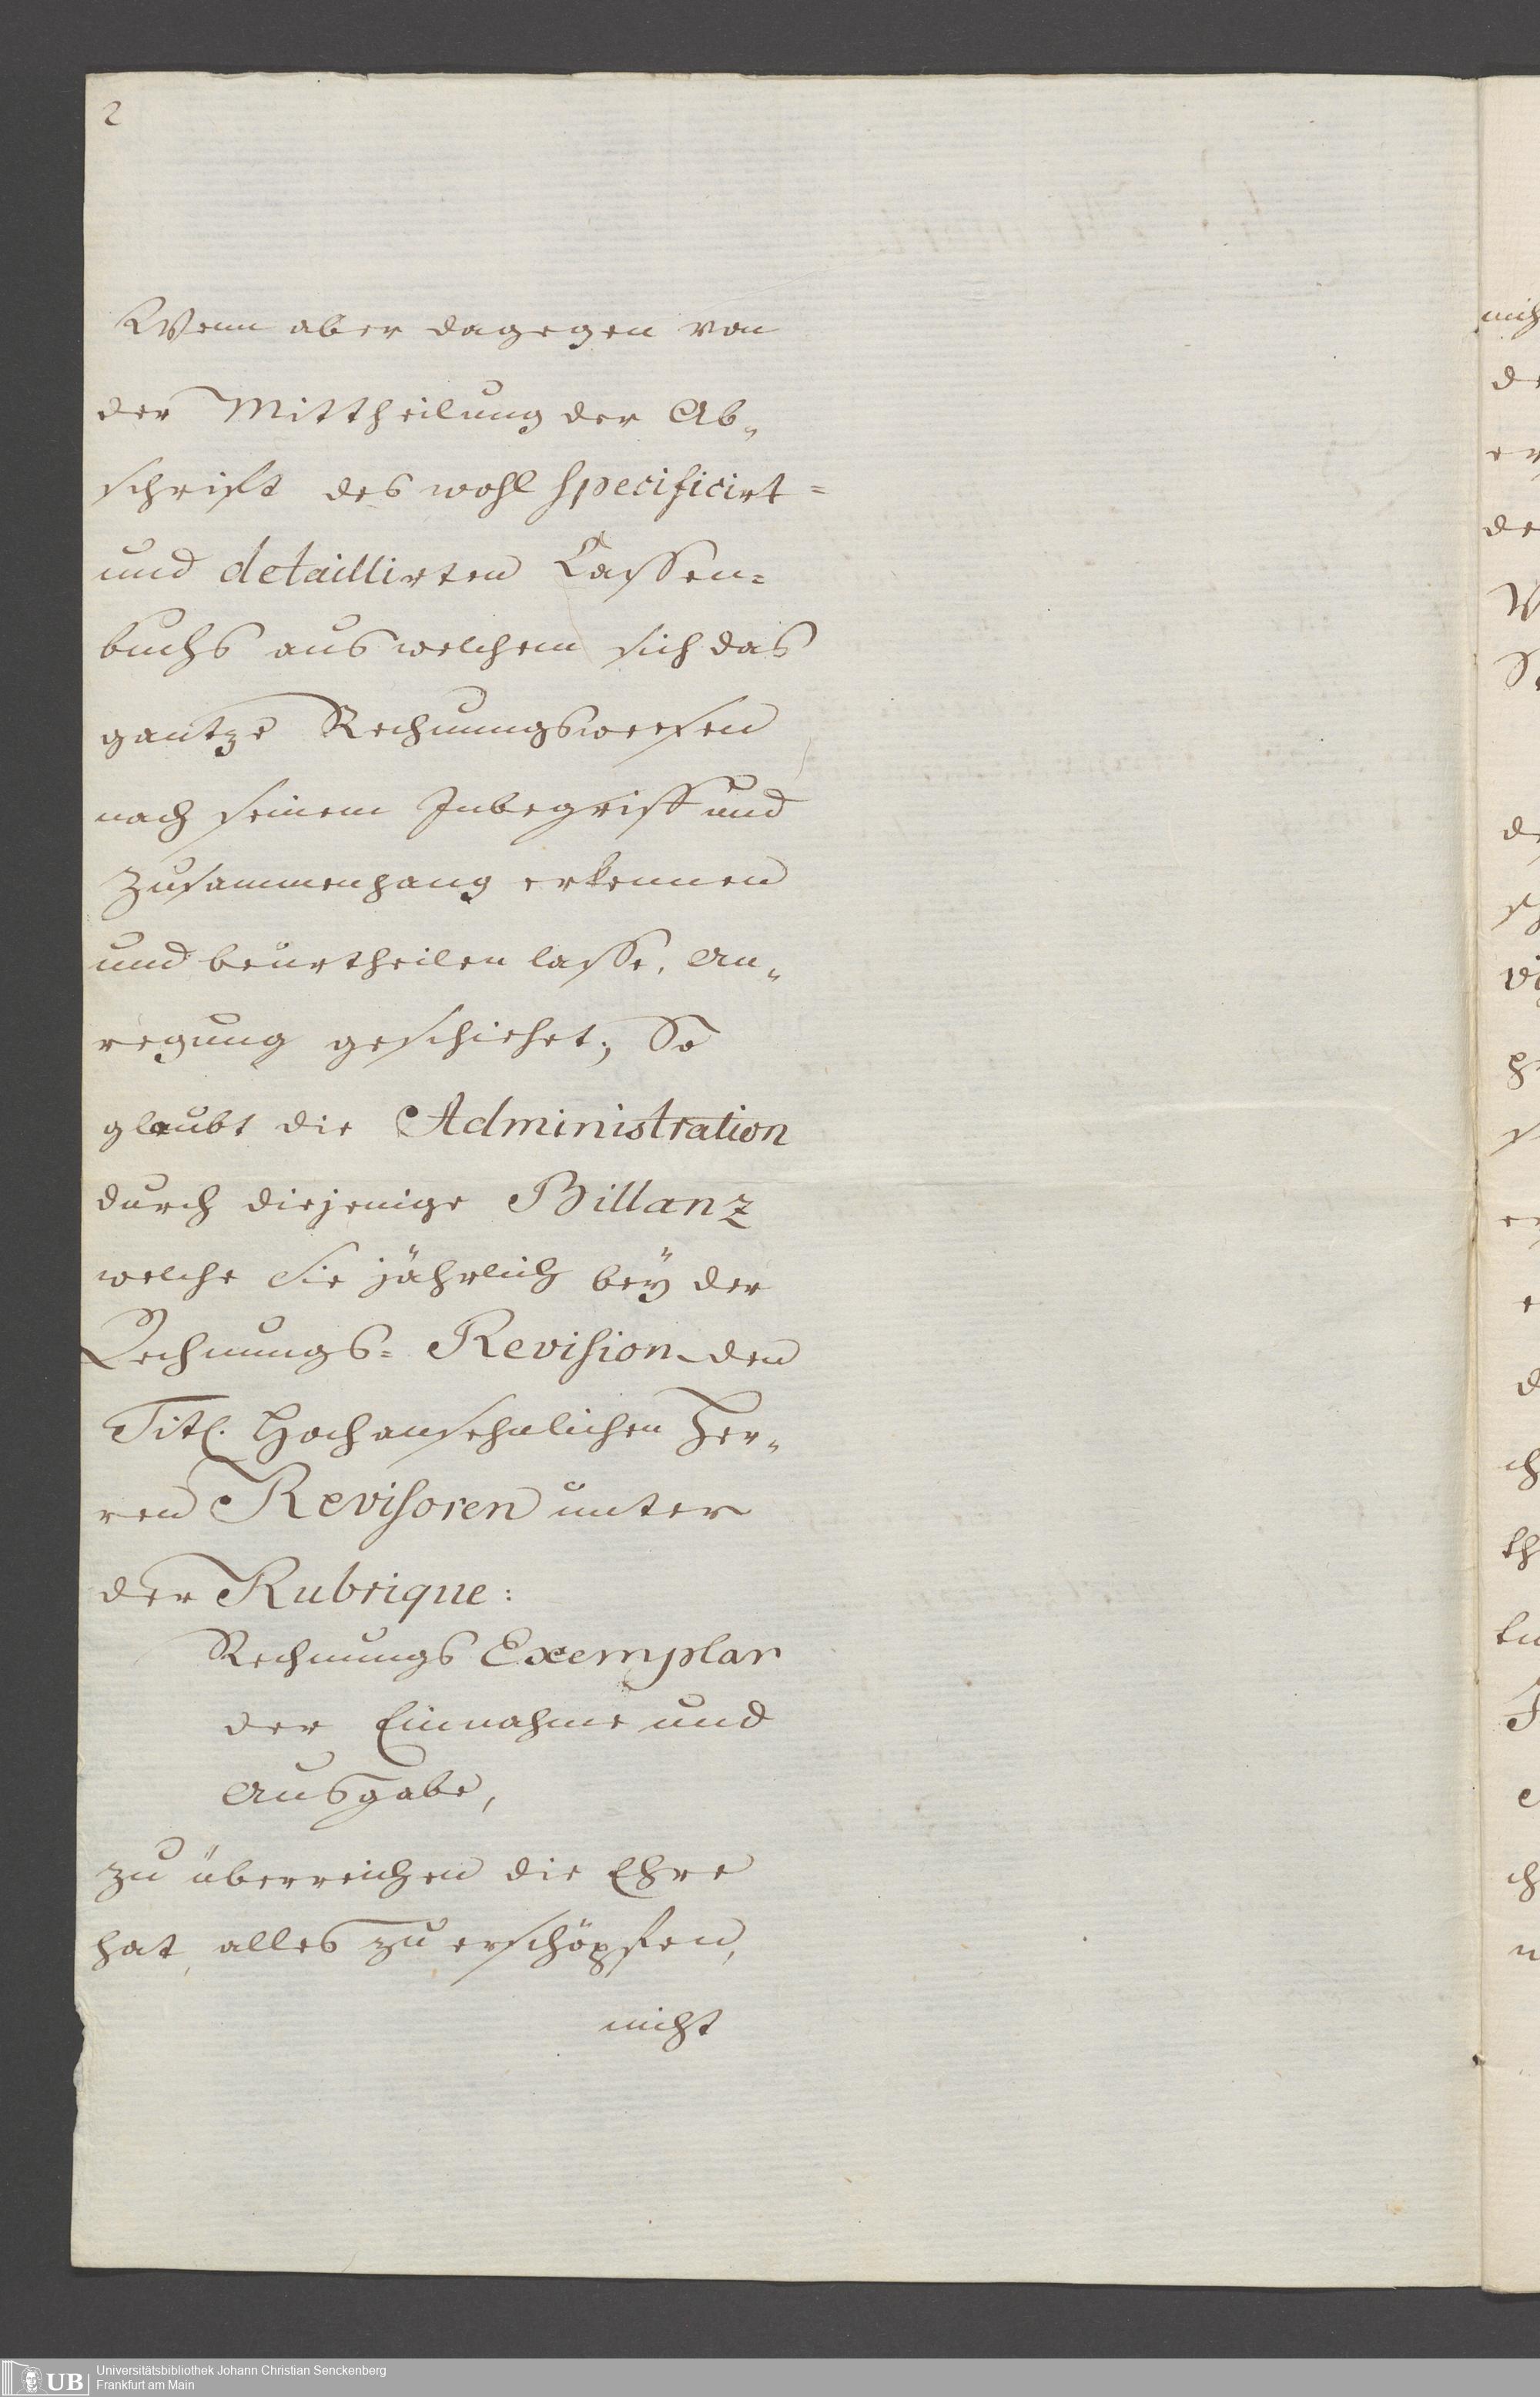 2
Wenn aber dagegen von
der Mittheilung der Ab„
schrift des wohl specificirt=
und detaillirten Cassen=
buchs aus welchem sich das
gantze Rechnungsweesen
nach seinem Inbegriff und
Zusammenhang erkennen
und beurtheilen lasse, An„
regung geschiehet; So
glaubt die Administration
durch diejenige Billanz
welche Sie jährlich beÿ der
Rechnungs= Revision den
Titl. Hochansehnlichen Her„
ren Revisoren unter
der Rubrique:
Rechnungs Exemplar
der Einnahme und
Ausgabe,
zu überreichen die Ehre
hat, alles zu erschöpfen,
nicht
UB
Universitätsbibliothek Johann Christian Senckenberg
Frankfurt am Main